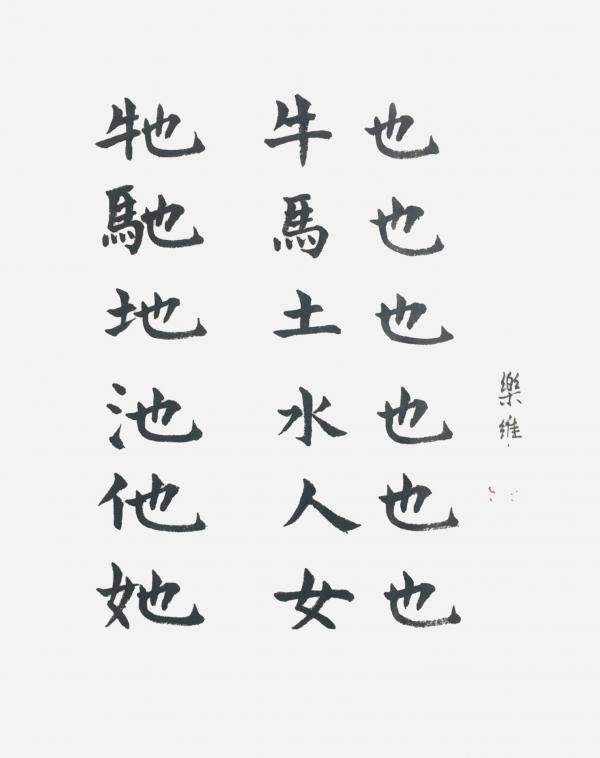 牠 牛 也
馳 馬 也
地 土 也
池 水 也
他 人 也
她 女 也
樂維